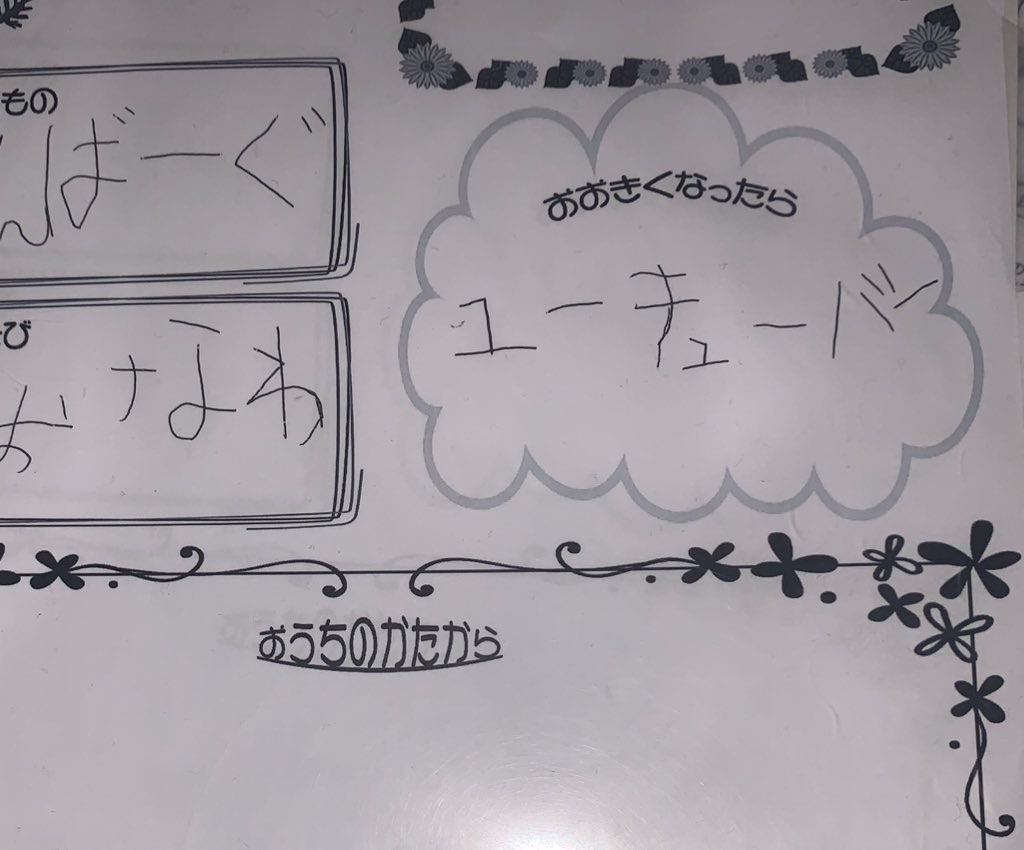 もの
んばーぐ
び
おおなわ
おおきくなったら
ユーチューバー
おうちのかたから